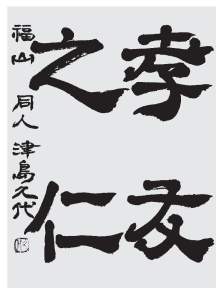 孝友
之仁
福山 同人 津島久代